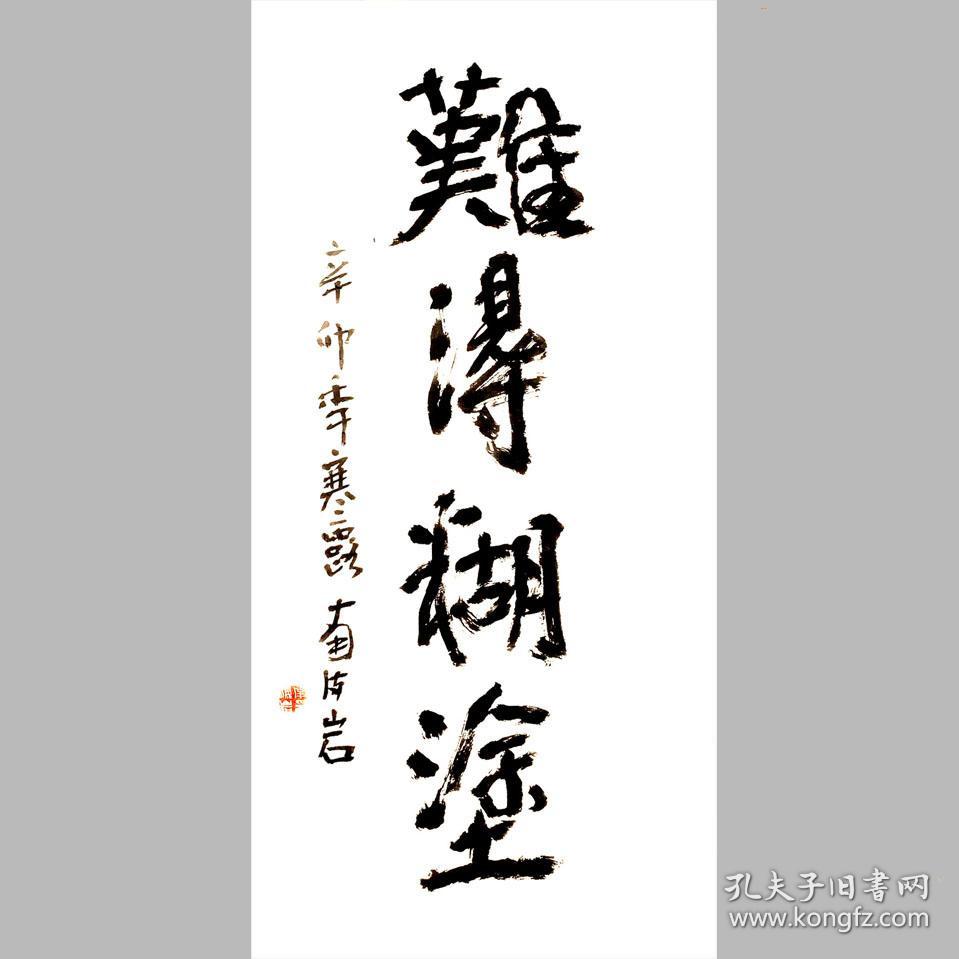 難得糊塗
辛卯季寒露 南海岩
孔夫子旧書网
www.kongfz.com